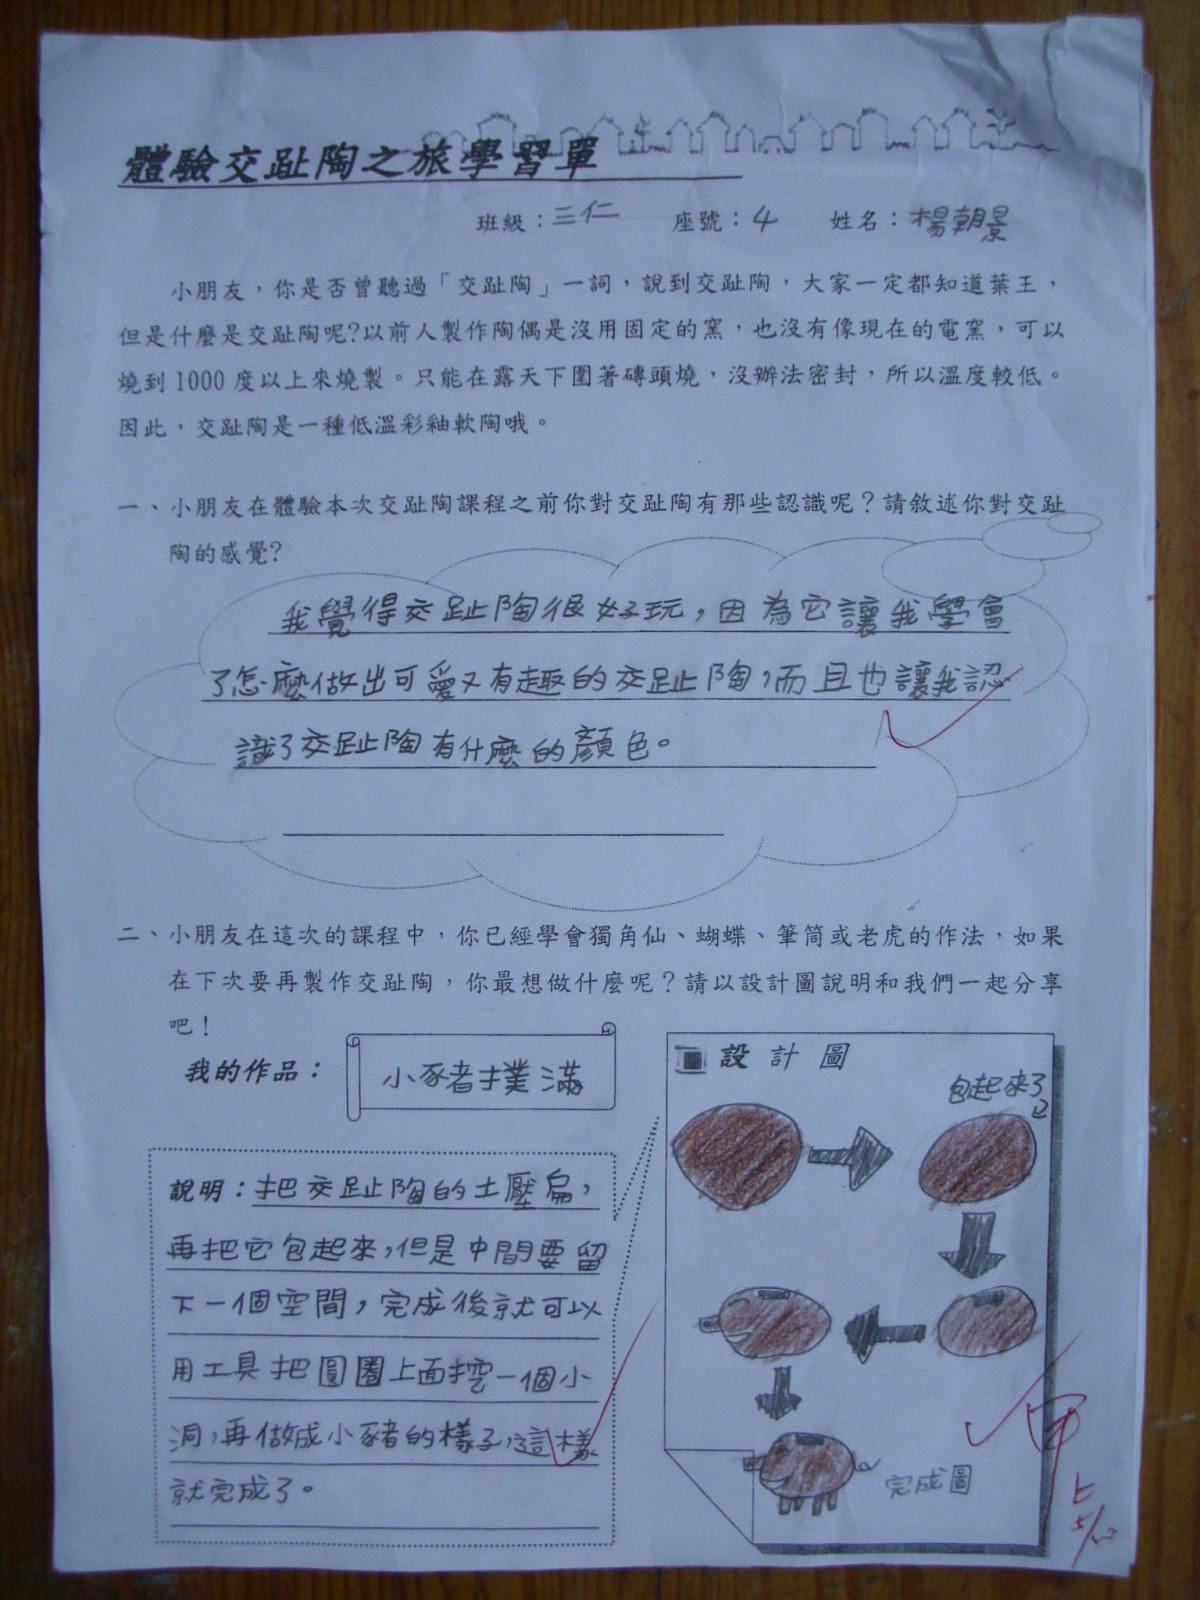 體驗交趾陶之旅學習單
班級：三仁 座號：4 姓名：楊朝景
小朋友，你是否曾聽過「交趾陶」一詞，說到交趾陶，大家一定都知道葉王，
但是什麼是交趾陶呢?以前人製作陶偶是沒用固定的窯，也沒有像現在的電窯，可以
燒到1000度以上來燒製。只能在露天下圍著磚頭燒，沒辦法密封，所以溫度較低。
因此，交趾陶是一種低溫彩釉軟陶哦。
一、小朋友在體驗本次交趾陶課程之前你對交趾陶有那些認識呢？請敘述你對交趾
陶的感覺?
我覺得交趾陶很好玩，因為它讓我學會
了怎麼做出可愛又有趣的交趾陶，而且也讓我認
識了交趾陶有什麼的顏色。
二、小朋友在這次的課程中，你已經學會獨角仙、蝴蝶、筆筒或老虎的作法，如果
在下次要再製作交趾陶，你最想做什麼呢？請以設計圖說明和我們一起分享
吧！
我的作品：
小豬撲滿
說明：把交趾陶的土壓扁，
再把它包起來，但是中間要留
下一個空間，完成後就可以
用工具把圓圈上面挖一個小
洞，再做成小豬的樣子，這樣
就完成了。
設計圖
包起來了
完成圖
甲